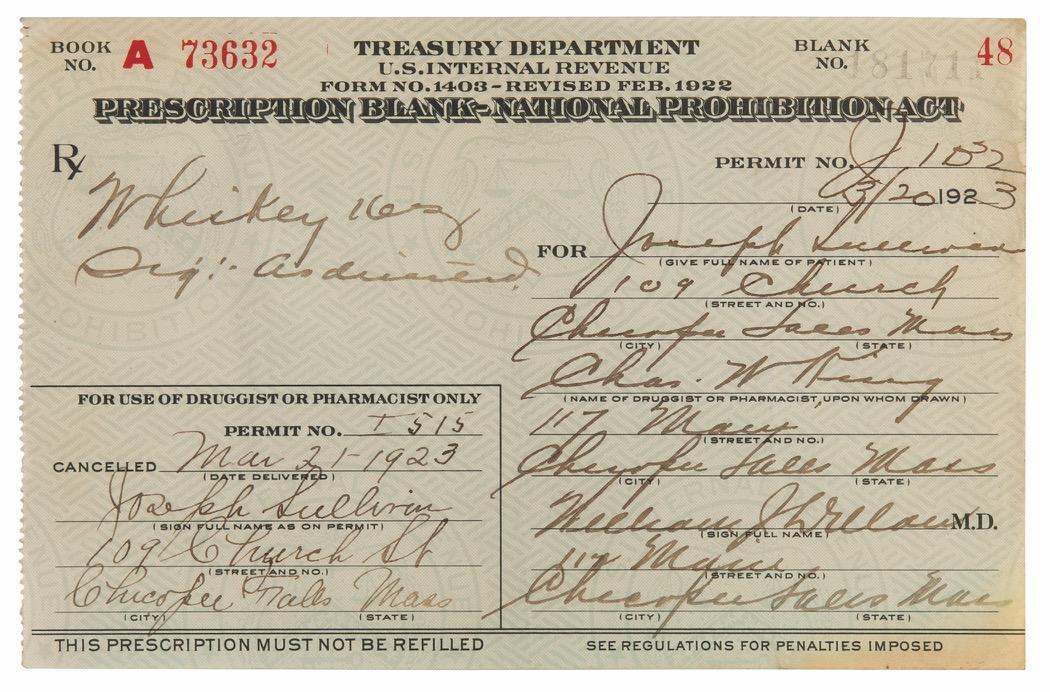 BOOK NO. A 73632
TREASURY DEPARTMENT
U.S. INTERNAL REVENUE
FORM NO. 1403 - REVISED FEB. 1922
BLANK NO. 48
PRESCRIPTION BLANK - NATIONAL PROHIBITION ACT
Rx
PERMIT NO. J 152
3/20 1923
(DATE)
Whiskey 16 oz
Sig:- As directed.
FOR Joseph Sullivan
(GIVE FULL NAME OF PATIENT)
109 Church
(STREET AND NO.)
Chicopee Falls Mass
(CITY) (STATE)
Chas. W King
(NAME OF DRUGGIST OR PHARMACIST, UPON WHOM DRAWN)
117 Main
(STREET AND NO.)
Chicopee Falls Mass
(CITY) (STATE)
William J M.D.
(SIGN FULL NAME)
117 Main
(STREET AND NO.)
Chicopee Falls Mass
(CITY) (STATE)
FOR USE OF DRUGGIST OR PHARMACIST ONLY
PERMIT NO. I 515
CANCELLED Mar 21-1923
(DATE DELIVERED)
Joseph Sullivan
(SIGN FULL NAME AS ON PERMIT)
109 Church St
(STREET AND NO.)
Chicopee Falls Mass
(CITY) (STATE)
THIS PRESCRIPTION MUST NOT BE REFILLED
SEE REGULATIONS FOR PENALTIES IMPOSED